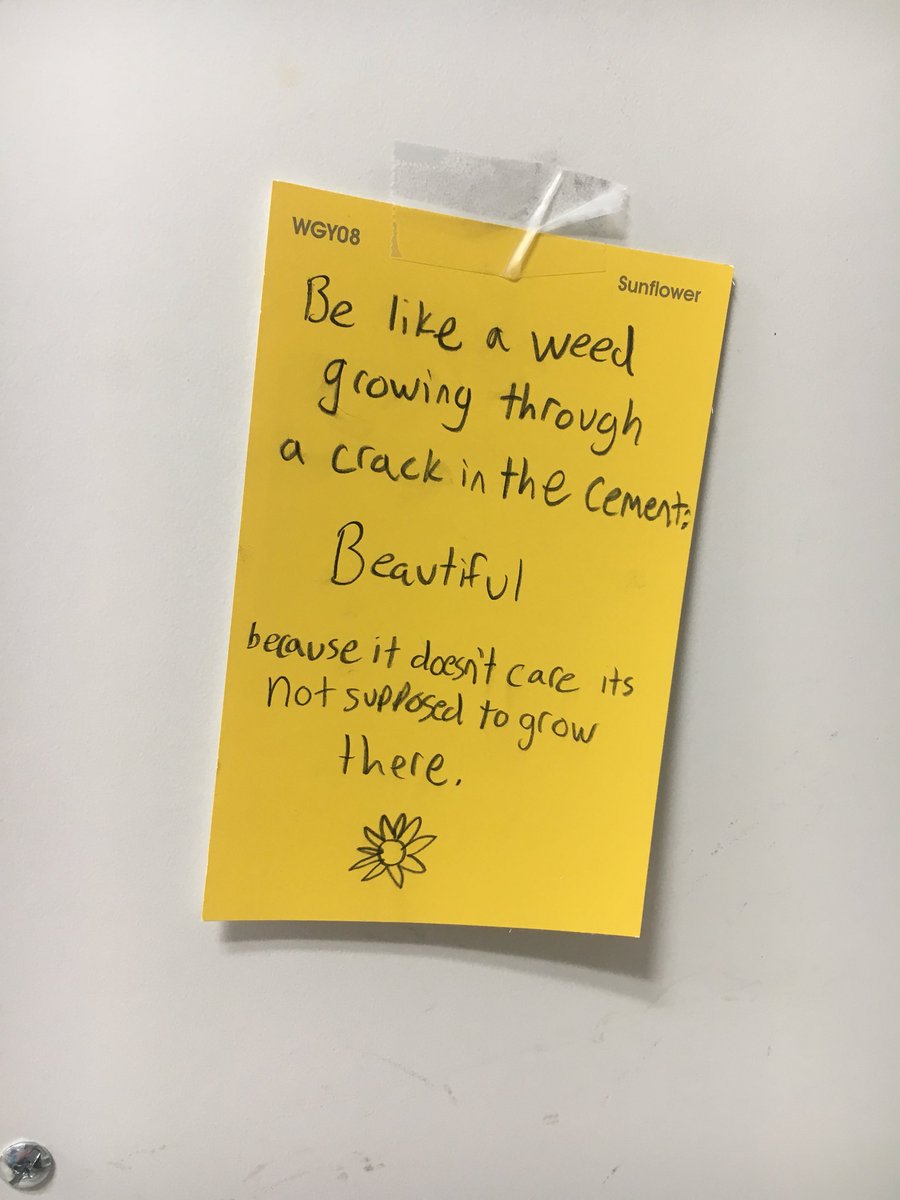 WGY08
Sunflower
Be like a weed
growing through
a crack in the cement:
Beautiful
because it doesn't care its
not supposed to grow
there.